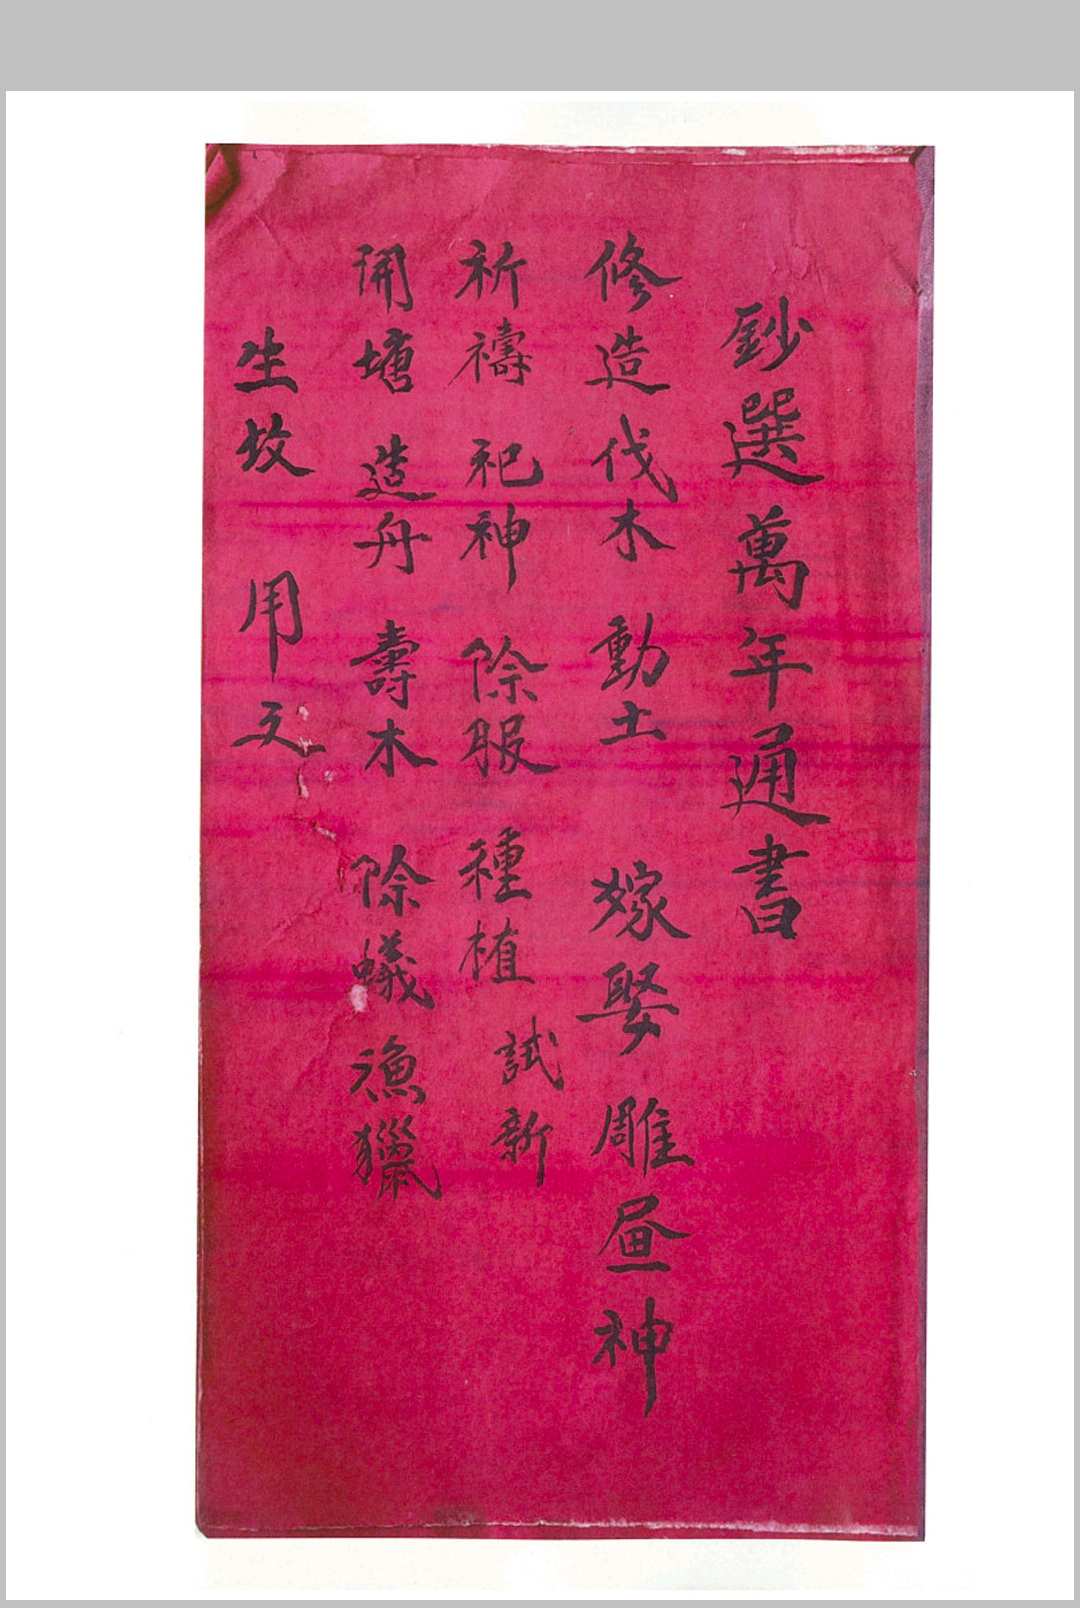 鈔選萬年通書
修造伐木 動土 嫁娶雕画神
祈禱 祀神 除服 種植 試新
開塘 造舟 壽木 除蟻 漁獵
生坟 用文